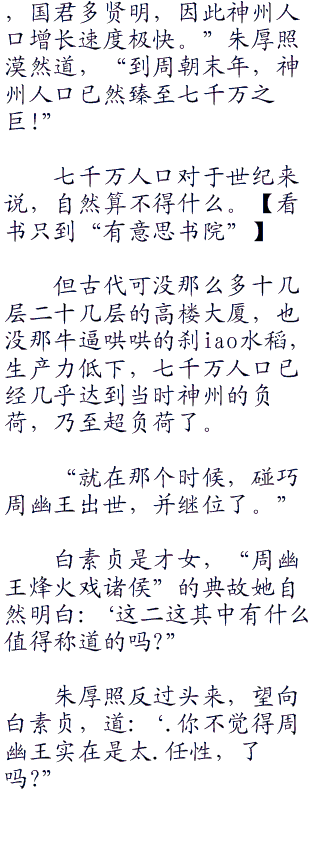 ，国君多贤明，因此神州人
口增长速度极快。”朱厚照
漠然道，“到周朝末年，神
州人口已然臻至七千万之
巨!”
七千万人口对于世纪来
说，自然算不得什么。【看
书只到“有意思书院”】
但古代可没那么多十几
层二十几层的高楼大厦，也
没那牛逼哄哄的刹iao水稻，
生产力低下，七千万人口已
经几乎达到当时神州的负
荷，乃至超负荷了。
“就在那个时候，碰巧
周幽王出世，并继位了。”
白素贞是才女，“周幽
王烽火戏诸侯”的典故她自
然明白：‘这二这其中有什么
值得称道的吗?”
朱厚照反过头来，望向
白素贞，道：‘.你不觉得周
幽王实在是太.任性，了
吗?”